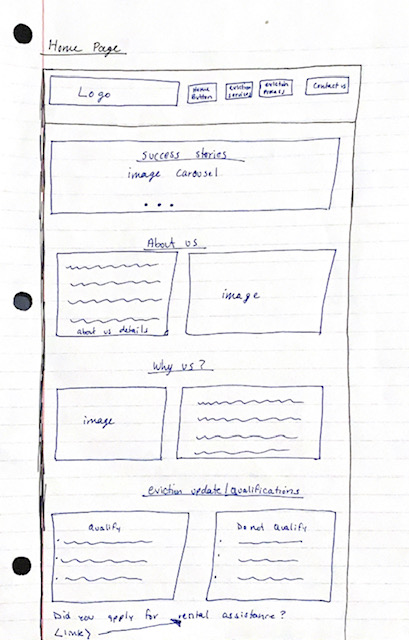 Home Page
Logo
Home Button
eviction services
eviction process
Contact us
Success stories
image carousel
...
About us
about us details
image
Why us?
image
eviction update/qualifications
Qualify
Do not Qualify
Did you apply for rental assistance?
Link>